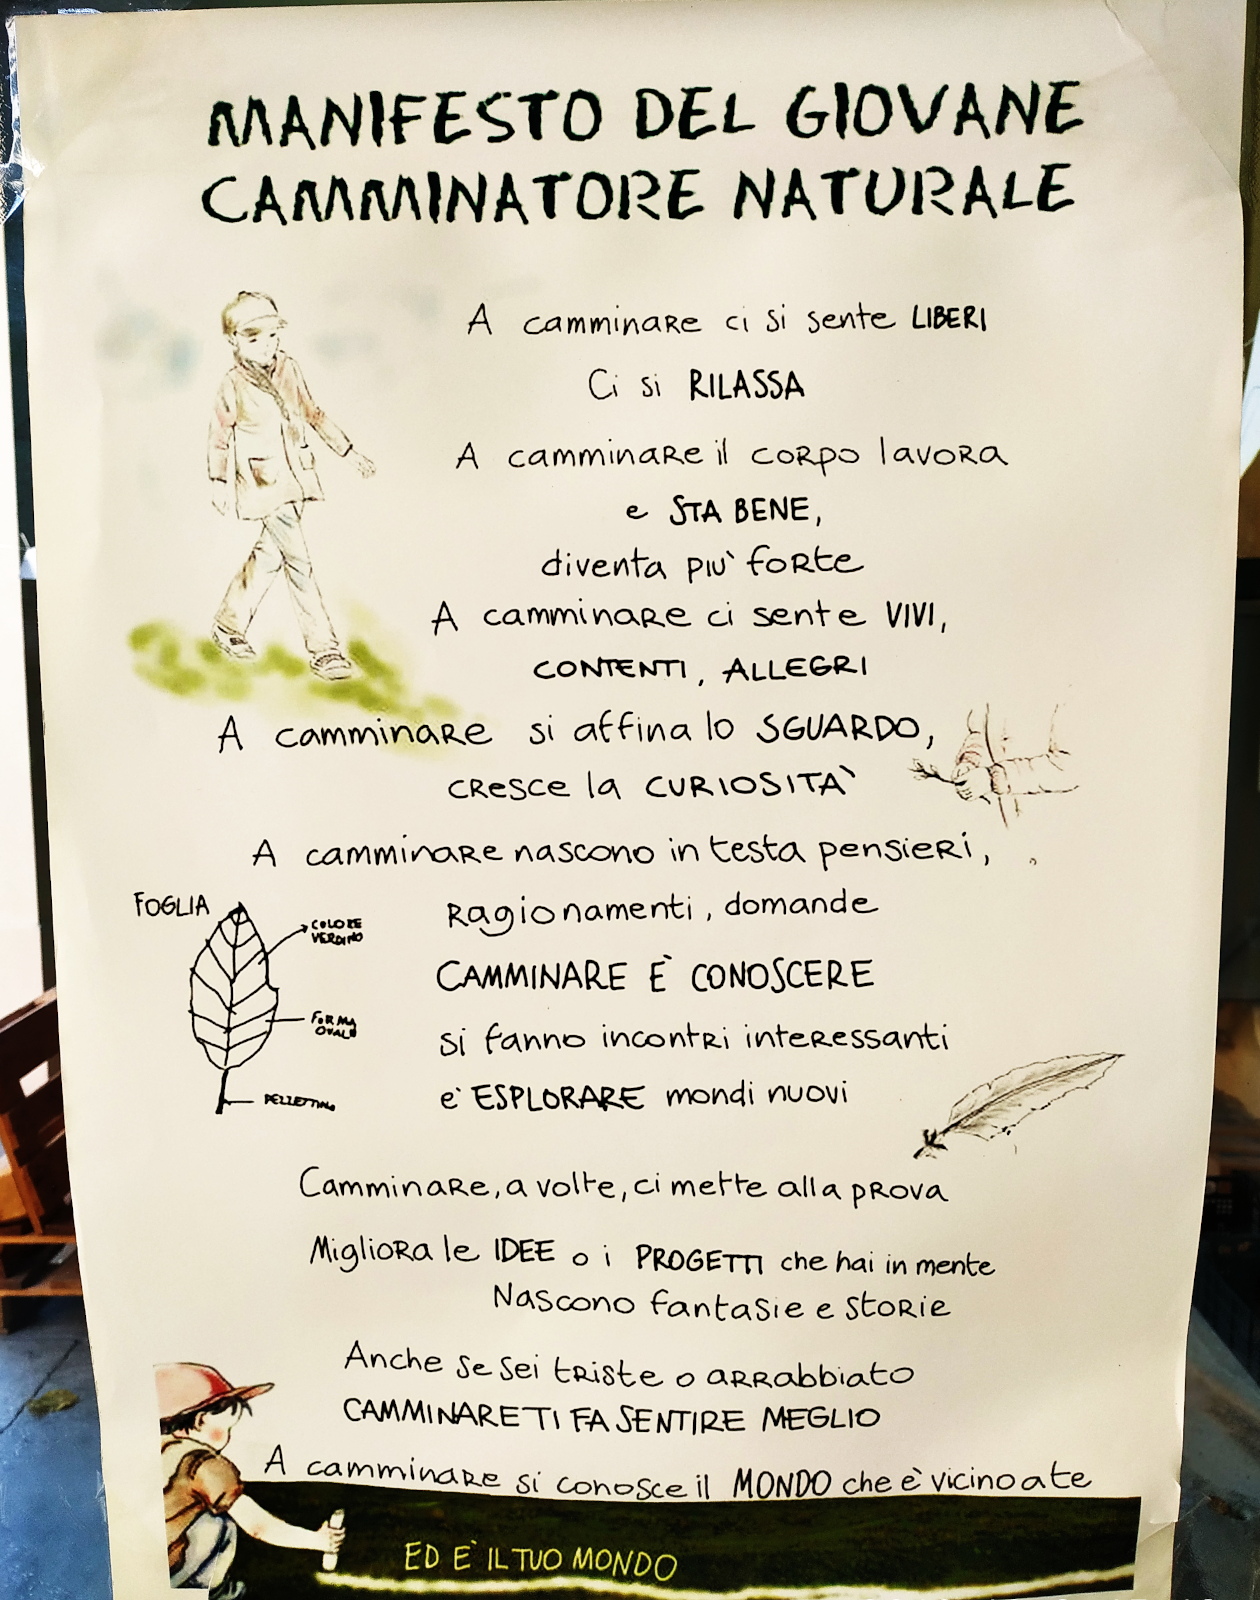 MANIFESTO DEL GIOVANE
CAMMINATORE NATURALE
A camminare ci si sente LIBERI
Ci si RILASSA
A camminare il corpo lavora
e STA BENE,
diventa più forte
A camminare ci sente VIVI,
CONTENTI, ALLEGRI
A camminare si affina lo SGUARDO,
cresce la CURIOSITÀ
A camminare nascono in testa pensieri,
ragionamenti, domande
FOGLIA
COLORE
VERDINO
FORMA
OVALE
CAMMINARE È CONOSCERE
si fanno incontri interessanti
è ESPLORARE mondi nuovi
Camminare, a volte, ci mette alla prova
Migliora le IDEE o i PROGETTI che hai in mente
Nascono fantasie e storie
Anche se sei triste o arrabbiato
CAMMINARE TI FA SENTIRE MEGLIO
A camminare si conosce il MONDO che è vicino a te
ED È IL TUO MONDO